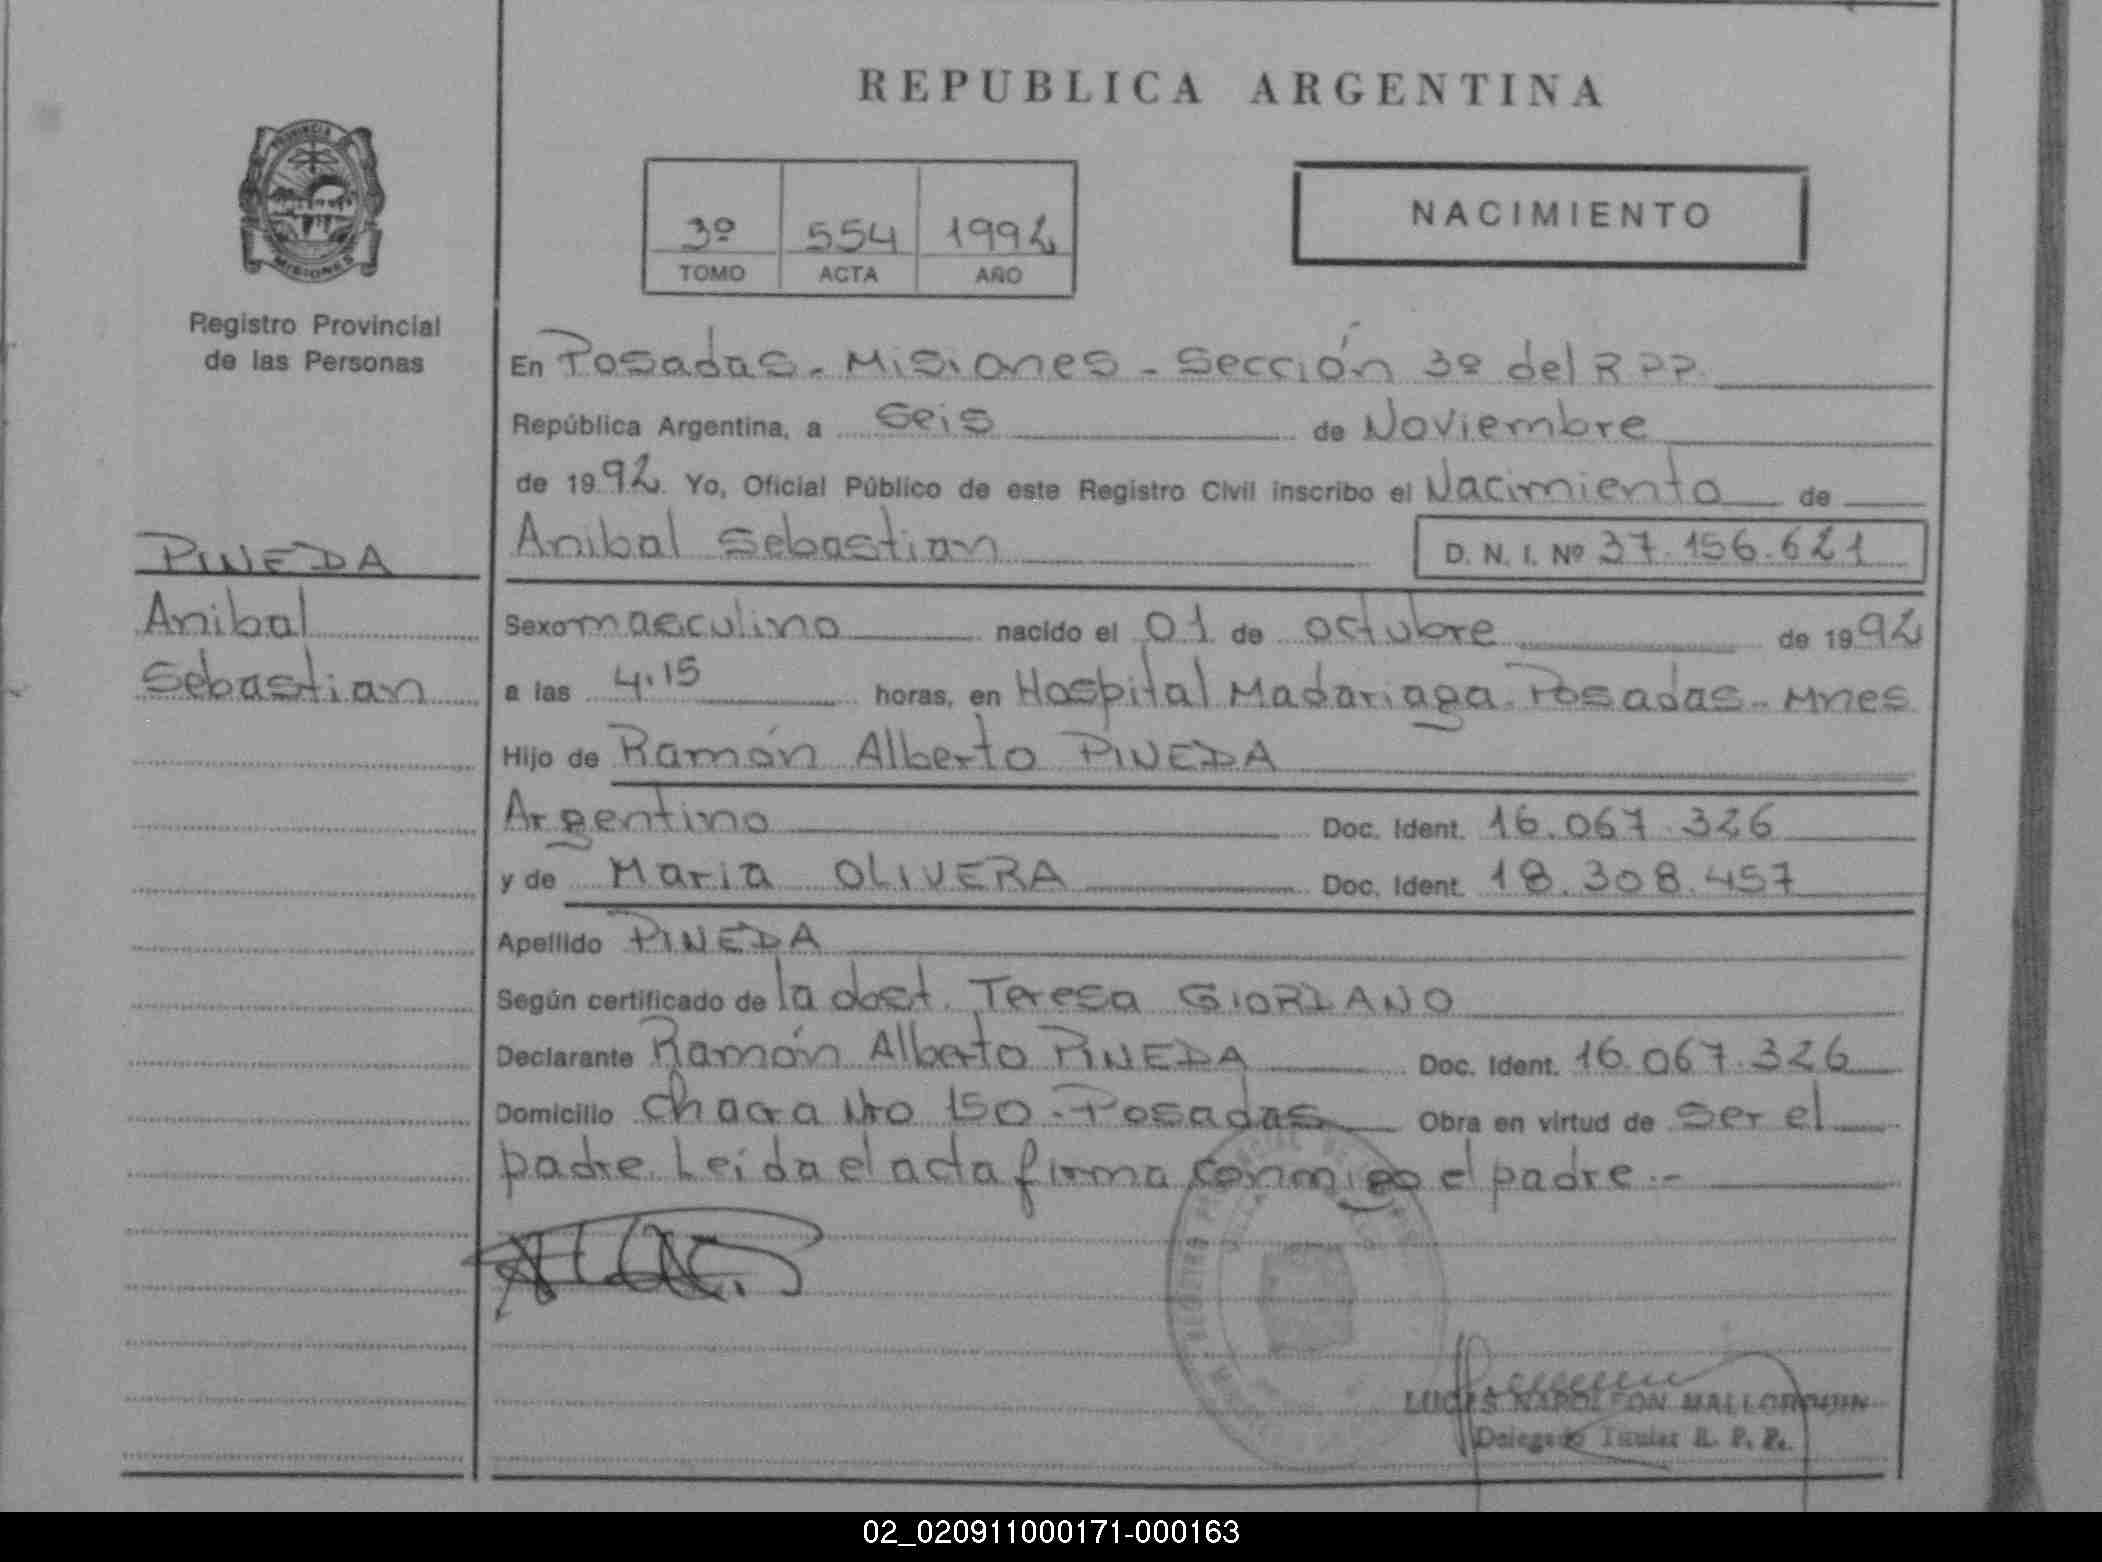 REPUBLICA ARGENTINA
PROVINCIA
MISIONES
Registro Provincial
de las Personas
3º 554 1992
TOMO ACTA AÑO
NACIMIENTO
En Posadas - Misiones - Sección 3º del RPP
República Argentina, a Seis de Noviembre
de 1992 Yo, Oficial Público de este Registro Civil inscribo el Nacimiento de
Anibal Sebastian D. N. I. Nº 37.156.621
PINEDA
Anibal
Sebastian
Sexo masculino nacido el 01 de octubre de 1992
a las 4.15 horas, en Hospital Madariaga. Posadas - Mnes
Hijo de Ramón Alberto PINEDA
Argentino Doc. Ident. 16.067.326
y de Maria OLIVERA Doc. Ident. 18.308.457
Apellido PINEDA
Según certificado de la obst. Teresa GIORDANO
Declarante Ramón Alberto PINEDA Doc. Ident. 16.067.326
Domicilio Chacra Nro 150 - Posadas Obra en virtud de ser el
padre. Leída el acta firma conmigo el padre.-
LUCAS NAPOLEON MALLORQUIN
Delegado Titular R. P. P.
02_020911000171-000163